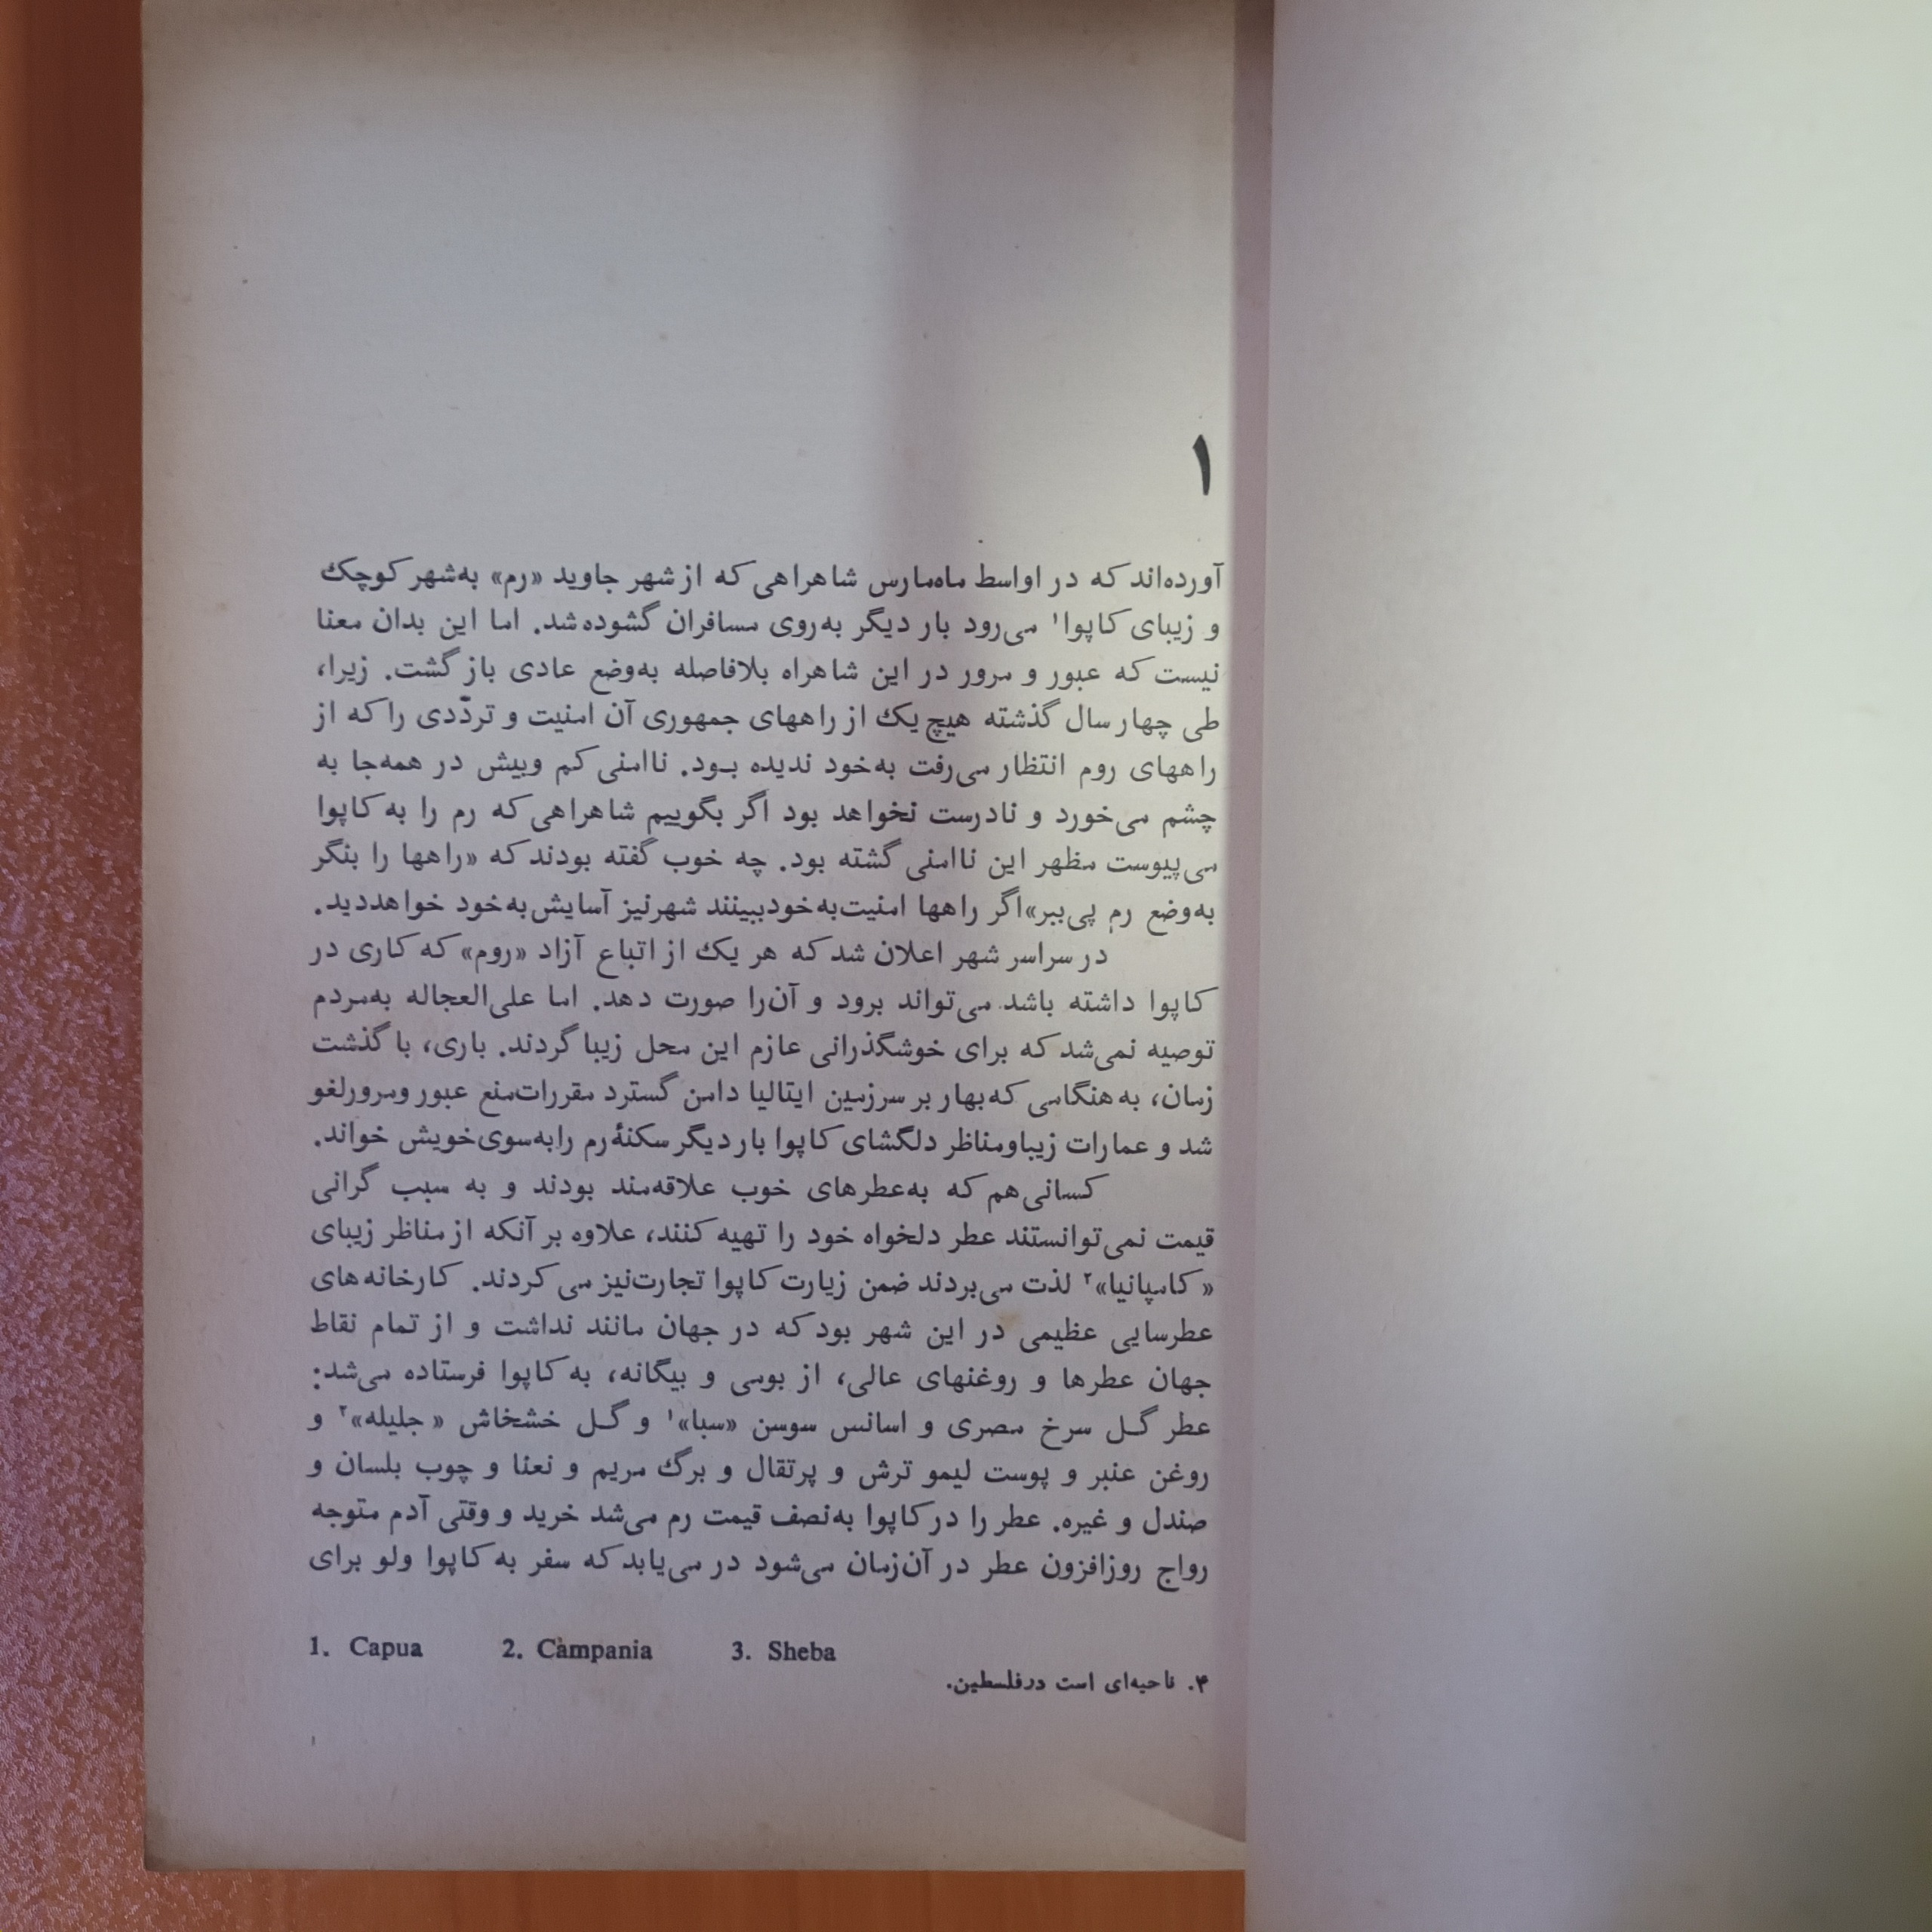 ۱
آورده‌اند که در اواسط ماه‌مارس شاهراهی که از شهر جاوید «رم» به‌شهر کوچک
و زیبای کاپوا۱ می‌رود بار دیگر به‌روی مسافران گشوده شد. اما این بدان معنا
نیست که عبور و مرور در این شاهراه بلافاصله به‌وضع عادی باز گشت. زیرا،
طی چهار سال گذشته هیچ یک از راههای جمهوری آن امنیت و تردّدی را که از
راههای روم انتظار می‌رفت به‌خود ندیده بـود. ناامنی کم وبیش در همه‌جا به
چشم می‌خورد و نادرست نخواهد بود اگر بگوییم شاهراهی که رم را به کاپوا
می‌پیوست مظهر این ناامنی گشته بود. چه خوب گفته بودند که «راهها را بنگر
به‌وضع رم پی‌ببر»اگر راهها امنیت‌به‌خودببینند شهرنیز آسایش‌به‌خود خواهددید.
در سراسر شهر اعلان شد که هر یک از اتباع آزاد «روم» که کاری در
کاپوا داشته باشد می‌تواند برود و آن‌را صورت دهد. اما علی‌العجاله به‌مردم
توصیه نمی‌شد که برای خوشگذرانی عازم این محل زیبا گردند. باری، با گذشت
زمان، به هنگامی که‌بهار بر سرزمین ایتالیا دامن گسترد مقررات‌منع عبور ومرورلغو
شد و عمارات زیباومناظر دلگشای کاپوا بار دیگر سکنهٔ رم رابه‌سوی‌خویش خواند.
کسانی‌هم که به‌عطرهای خوب علاقه‌مند بودند و به سبب گرانی
قیمت نمی‌توانستند عطر دلخواه خود را تهیه کنند، علاوه بر آنکه از مناظر زیبای
«کامپانیا»۲ لذت می‌بردند ضمن زیارت کاپوا تجارت‌نیز می‌کردند. کارخانه‌های
عطرسایی عظیمی در این شهر بود که در جهان مانند نداشت و از تمام نقاط
جهان عطرها و روغنهای عالی، از بومی و بیگانه، به کاپوا فرستاده می‌شد:
عطر گـل سرخ مصری و اسانس سوسن «سبا»۱ و گـل خشخاش «جلیله»۲ و
روغن عنبر و پوست لیمو ترش و پرتقال و برگ مریم و نعنا و چوب بلسان و
صندل و غیره. عطر را در کاپوا به‌نصف قیمت رم می‌شد خرید و وقتی آدم متوجه
رواج روزافزون عطر در آن‌زمان می‌شود در می‌یابد که سفر به کاپوا ولو برای
1. Capua 2. Campania 3. Sheba
۴. ناحیه‌ای است درفلسطین.